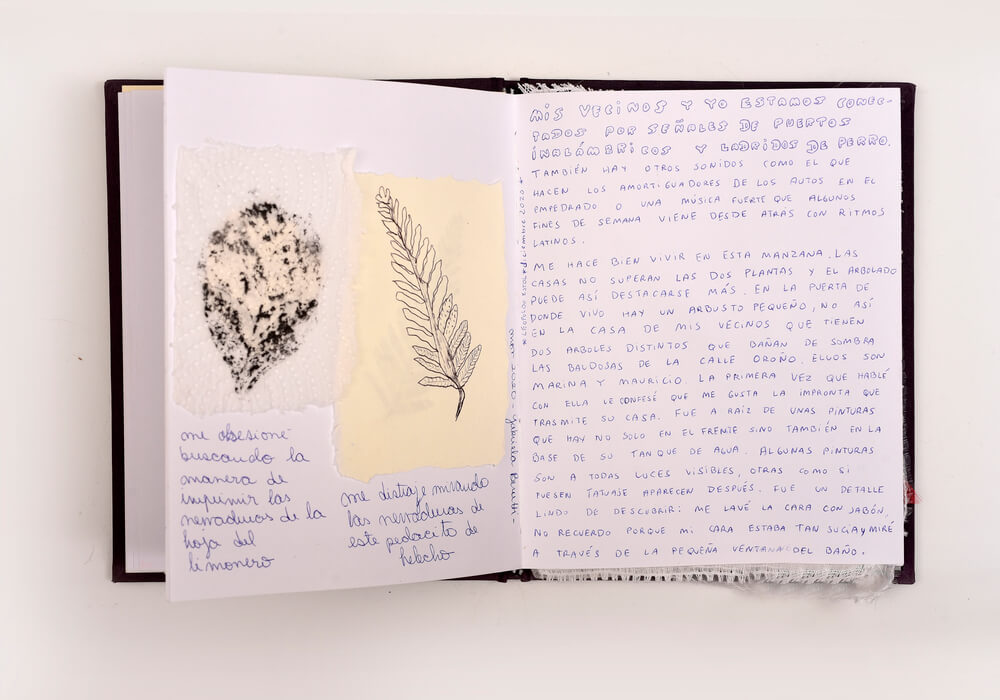 me obsesioné
buscando la
manera de
imprimir las
nervaduras de la
hoja del
limonero
me distraje mirando
las nervaduras de
este pedacito de
helecho
2020 - Gabriela
diciembre 2020
MIS VECINOS Y YO ESTAMOS CONEC-
TADOS POR SEÑALES DE PUERTOS
INALÁMBRICOS Y LADRIDOS DE PERRO.
TAMBIÉN HAY OTROS SONIDOS COMO EL QUE
HACEN LOS AMORTIGUADORES DE LOS AUTOS EN EL
EMPEDRADO O UNA MÚSICA FUERTE QUE ALGUNOS
FINES DE SEMANA VIENE DESDE ATRAS CON RITMOS
LATINOS.
ME HACE BIEN VIVIR EN ESTA MANZANA. LAS
CASAS NO SUPERAN LAS DOS PLANTAS Y EL ARBOLADO
PUEDE ASÍ DESTACARSE MÁS. EN LA PUERTA DE
DONDE VIVO HAY UN ARBUSTO PEQUEÑO, NO ASÍ
EN LA CASA DE MIS VECINOS QUE TIENEN
DOS ARBOLES DISTINTOS QUE BAÑAN DE SOMBRA
LAS BALDOSAS DE LA CALLE OROÑO. ELLOS SON
MARINA Y MAURICIO. LA PRIMERA VEZ QUE HABLÉ
CON ELLA LE CONFESÉ QUE ME GUSTA LA IMPRONTA QUE
TRASMITE SU CASA. FUE A RAÍZ DE UNAS PINTURAS
QUE HAY NO SOLO EN EL FRENTE SINO TAMBIÉN EN LA
BASE DE SU TANQUE DE AGUA. ALGUNAS PINTURAS
SON A TODAS LUCES VISIBLES, OTRAS COMO SI
FUESEN TATUAJE APARECEN DESPUÉS. FUE UN DETALLE
LINDO DE DESCUBRIR: ME LAVÉ LA CARA CON JABÓN,
NO RECUERDO PORQUE MI CARA ESTABA TAN SUCIA Y MIRÉ
A TRAVÉS DE LA PEQUEÑA VENTANA DEL BAÑO.